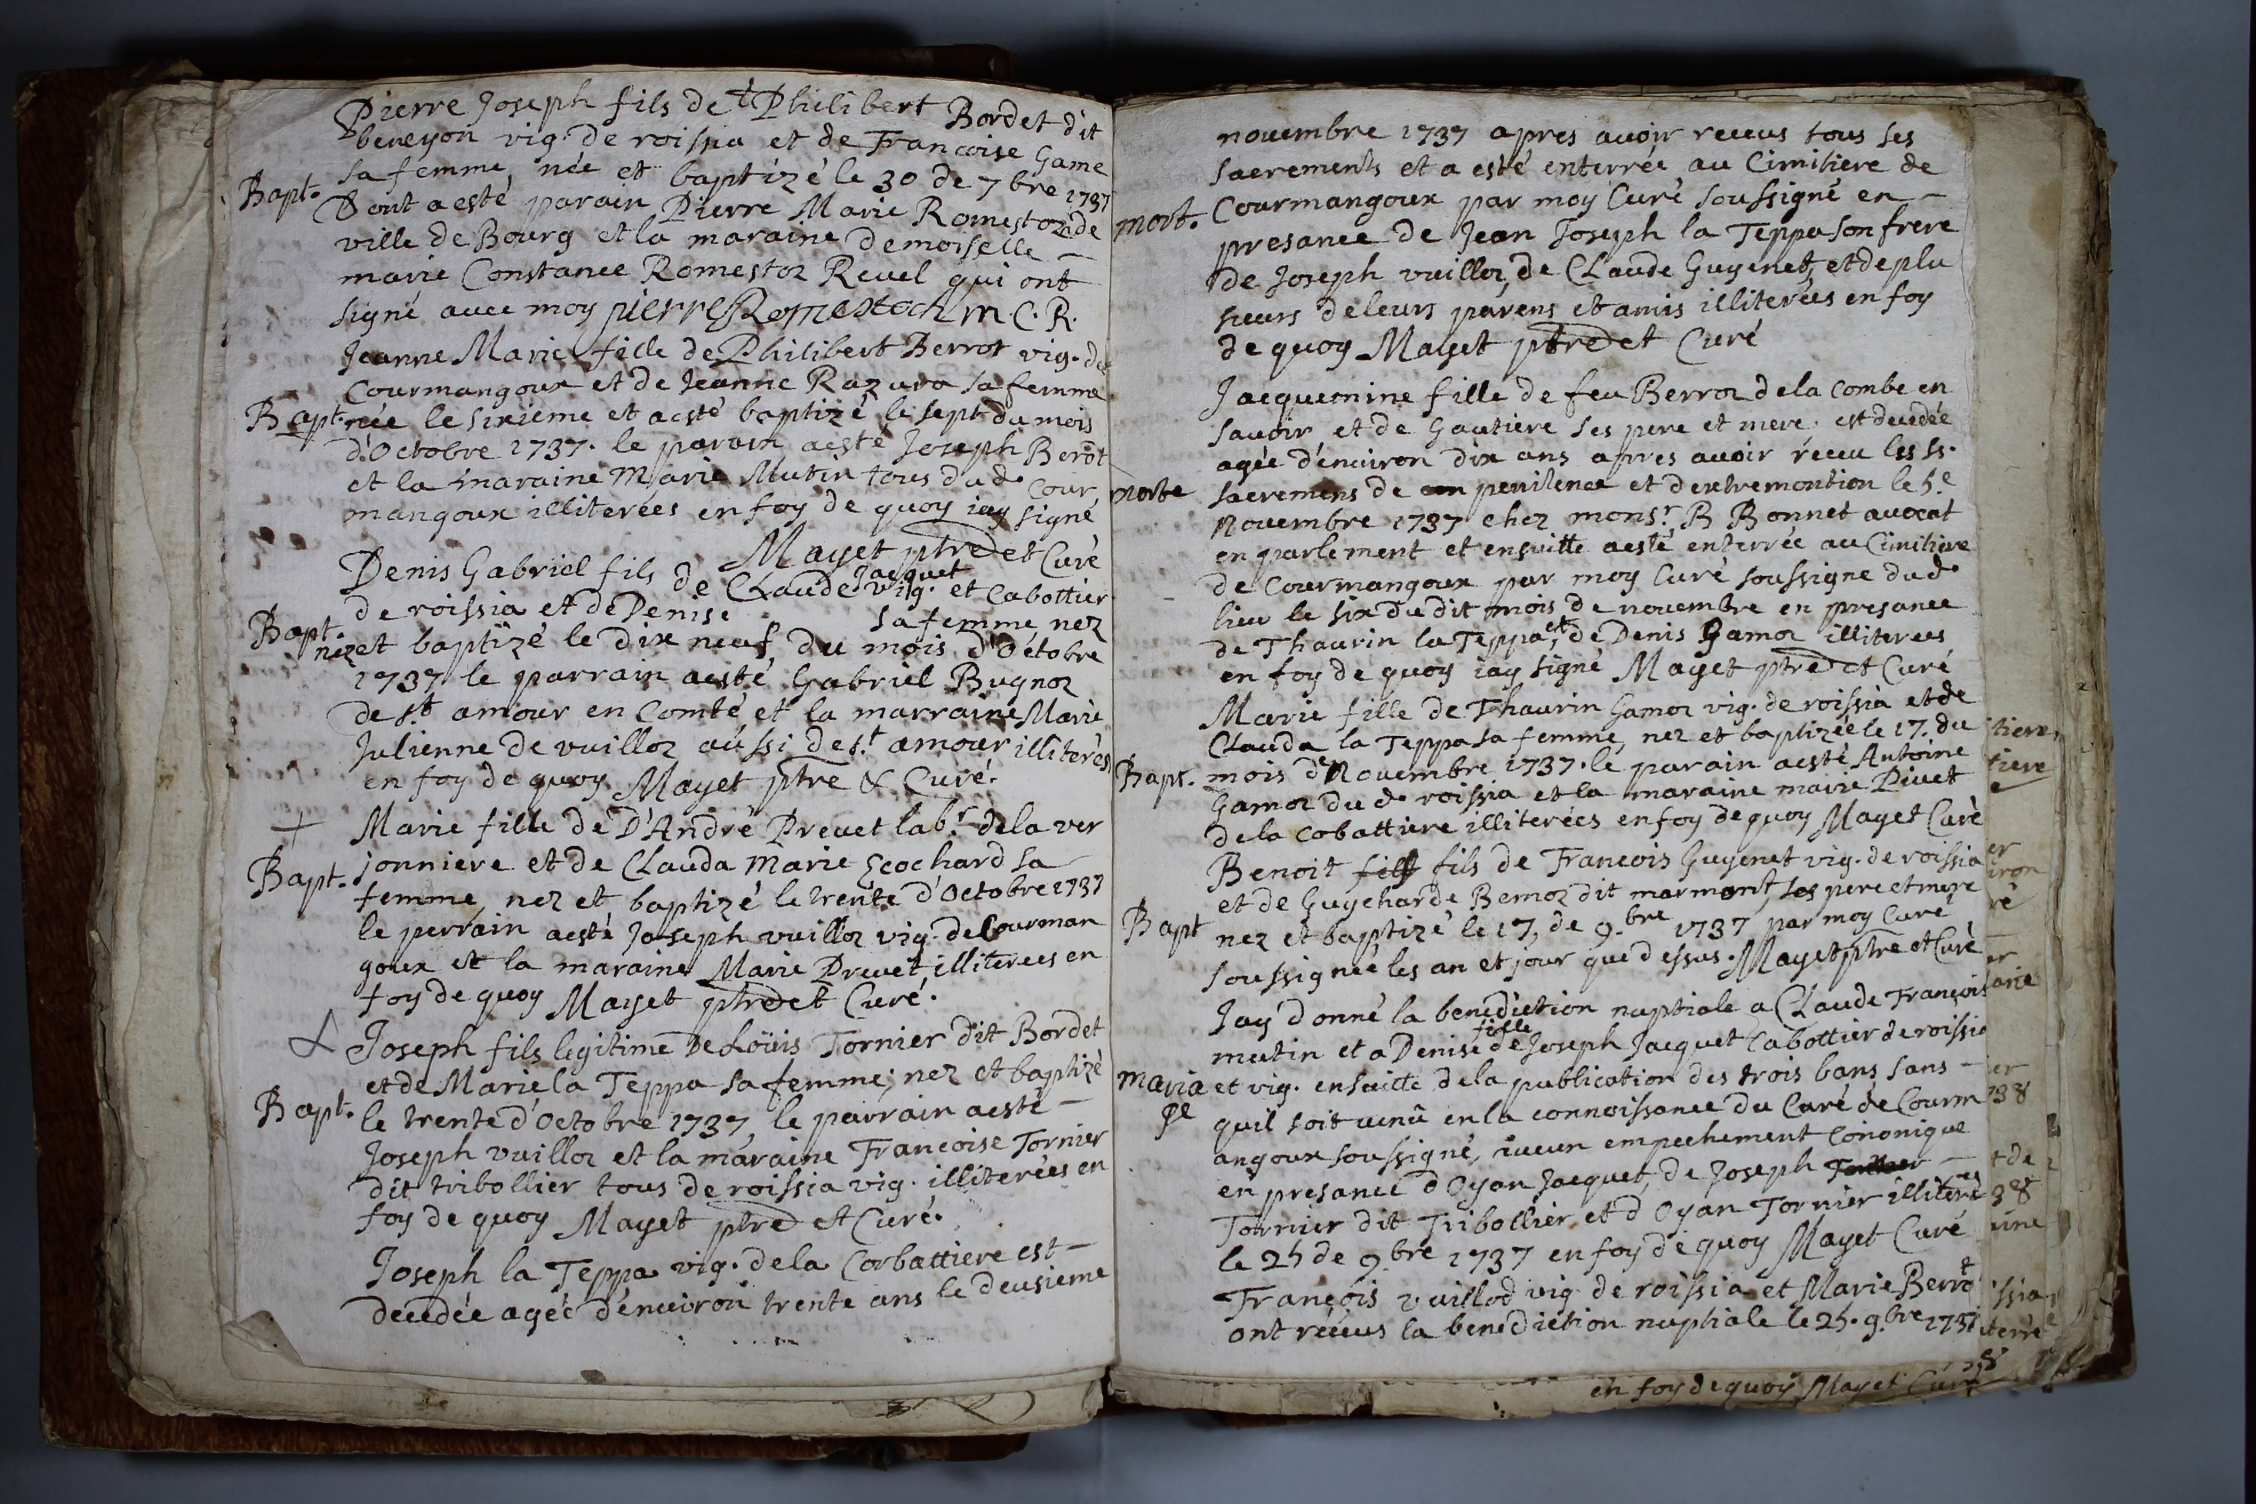 Pierre Joseph fils de t Philibert Bordet dit
beneyon vig. de roissia et de Francoise Game
sa femme, née et baptizé le 30 de 7bre 1737
Bapt. Dont a esté parain Pierre Marie Romestoz de
ville de Bourg et la maraine demoiselle –
marie Constance Romestoz Revel qui ont
signé avec moy pierre Romestoch m. C. R.
Jeanne Marie fille de Philibert Berrot vig. de
Courmangoux et de Jeanne Razura sa femme
Bapt. née le sixieme et aesté baptizé le sept du mois
d'Octobre 1737. le parain aesté Joseph Berot
et la maraine Marie Mutin tous dud. Cour
mangoux illiterées en foy de quoy iay signé
Mayet ptre et Curé
Denis Gabriel fils de Claude Jacquet vig. et Cabottier
de roissia et de Denise sa femme nez
Bapt. nez et baptizé le dix neuf du mois d'Octobre
1737 le parrain aesté Gabriel Bugnoz
de st. amour en Comté et la marraine Marie
Julienne de vuilloz aussi de s.t amour illiterés
en foy de quoy Mayet ptre & Curé.
+ Marie fille de D'André Prevet lab.r dela ver
Bapt. jonniere et de Clauda Marie Ecochard sa
femme, nez et baptizé le trente d'Octobre 1737
le perrain aesté Joseph vuilloz vig. de Courman
goux et la maraine Marie Prevet, illiterees en
foy de quoy Mayet ptre et Curé.
Joseph fils legitime De Loüis Tornier dit Bordet
et de Marie la Teppa sa femme; nez et baptizé
Bapt. le trente d'Octobre 1737, le parrain aesté –
Joseph vuilloz et la maraine Francoise Tornier
dit tribollier tous de roissia vig. illiterées en
foy de quoy Mayet ptre et Curé.
Joseph la Teppa vig. dela Corbattiere est –
decedée agée d'enuiron trente ans le deusieme
novembre 1737 apres avoir receus tous ses
sacrements et a esté enterrée au Cimitiere de
mort. Courmangoux par moy Curé soussigné en –
presance de Jean Joseph la Teppa son frere
de Joseph vuilloz, de Claude Guyenet, et de plu
sieurs de leurs parens et amis illiterées en foy
de quoy Mayet ptre et Curé
Jacquemine fille de feu Berroz dela Combe en
savoir, et de Gautiere ses pere et mere. est decedée
agée d'enuiron dix ans apres avoir receu les ss.
morte sacremens de penitence et d'extremontion le 5.e
Novembre 1737 chez mons.r B Bonnet avocat
en parlement et ensuitte aesté enterrée au Cimitiere
de Courmangoux par moy Curé soussigne dud.
lieu le six du dit mois de novembre en presance
de Thaurin la Teppa, et de Denis Gamoz illiterees
en foy de quoy iay signé Mayet ptre et Curé
Marie fille de Thaurin Gamoz vig. de roissia et de
Clauda la Teppa sa femme, nez et baptizée le 17. du
Bapt. mois de Novembre 1737. le parain aesté Antoine
Gamoz du d. roissia et la maraine marie Pivet
de la Cobattiere illiterées en foy de quoy Mayet Curé
Benoit fils fils de Francois Guyenet vig. de roissia
et de Guycharde Bemoz dit marmont, ses pere et mere
Bapt nez et baptizé le 17, de 9.bre 1737 par moy Curé
soussignée les an et jour que dessus. Mayet ptre et Curé
Jay donné la benediction nuptiale a Claude François
mutin et a Denise fille de Joseph Jacquet Cabottier de roissia
maria ge et vig. ensuitte dela publication des trois bans sans –
quil soit venu en la connoissance du Curé de Courm
angoux soussigné, aucun empechement Cononique
en presance d'Oyan Jacquet, de Joseph –
Tornier dit Tribollier, et d'Oyan Tornier illiterées
le 25 de 9.bre 1737 en foy de quoy Mayet Curé
François vuillod vig. de roissia et Marie Berrot
ont receus la benediction nuptiale le 25. 9.bre 1737
en foy de quoy Mayet Curé